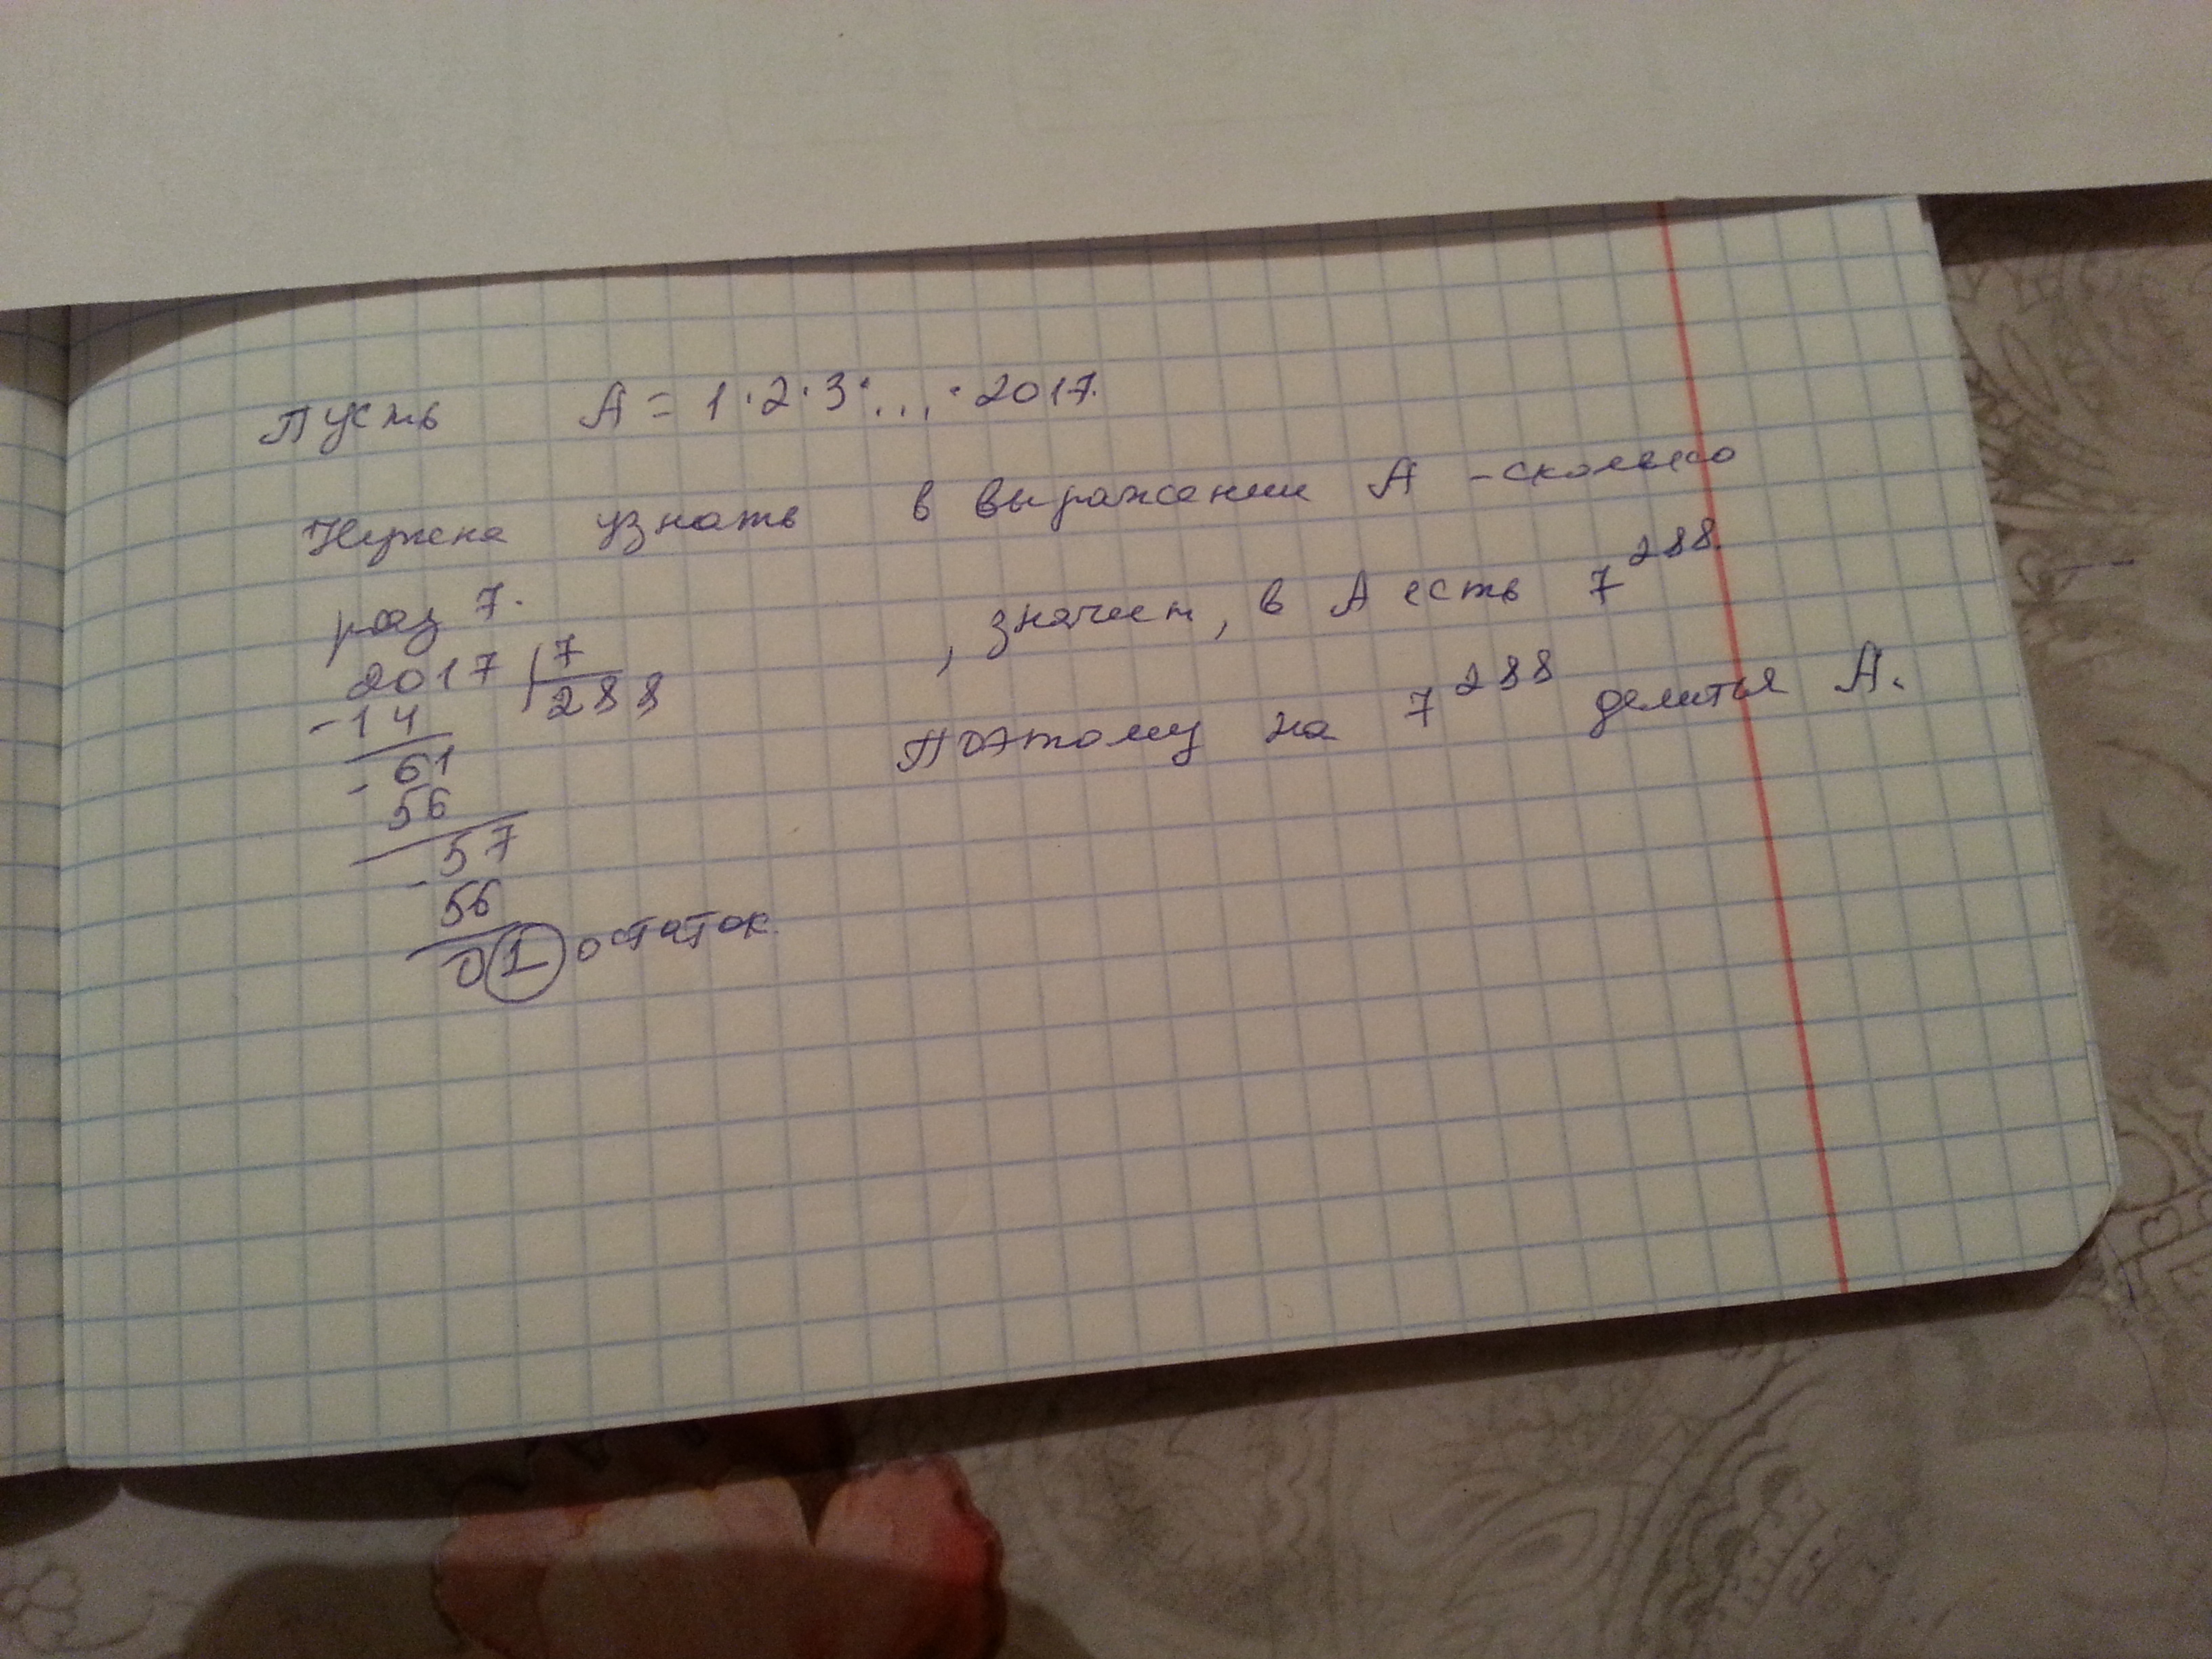 Пусть A = 1·2·3·...·2017.
Нужно узнать в выражении A - сколько
раз 7.
2017 | 7
-14 288
61
- 56
57
- 56
01 остаток
, значит, в A есть 7^288.
Поэтому на 7^288 делится A.